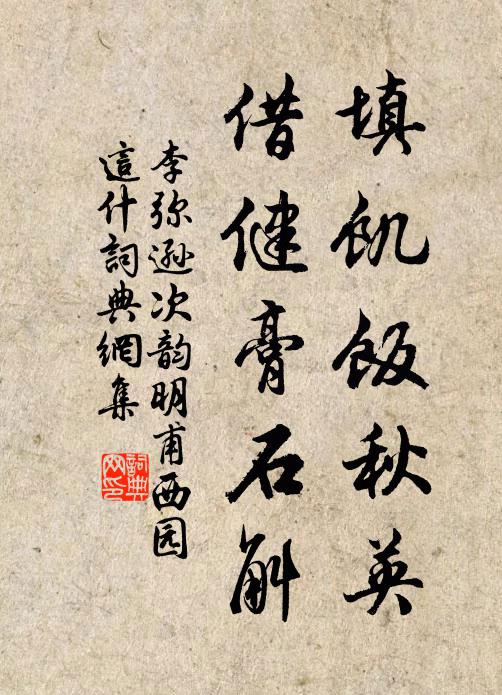 填飢飯秋英
借健膏石斛
李弥遜次韵明甫西园
這什詞典網集
詞典网印